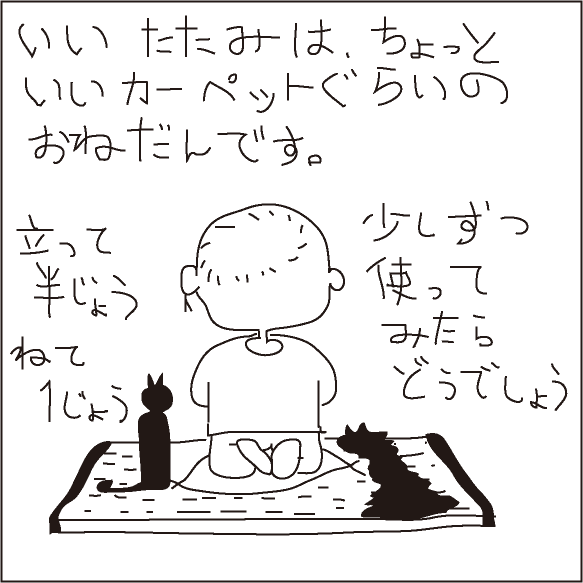 いい たたみは、ちょっと
いいカーペットぐらいの
おねだんです。
立って
半じょう
ねて
1じょう
少しずつ
使って
みたら
どうでしょう